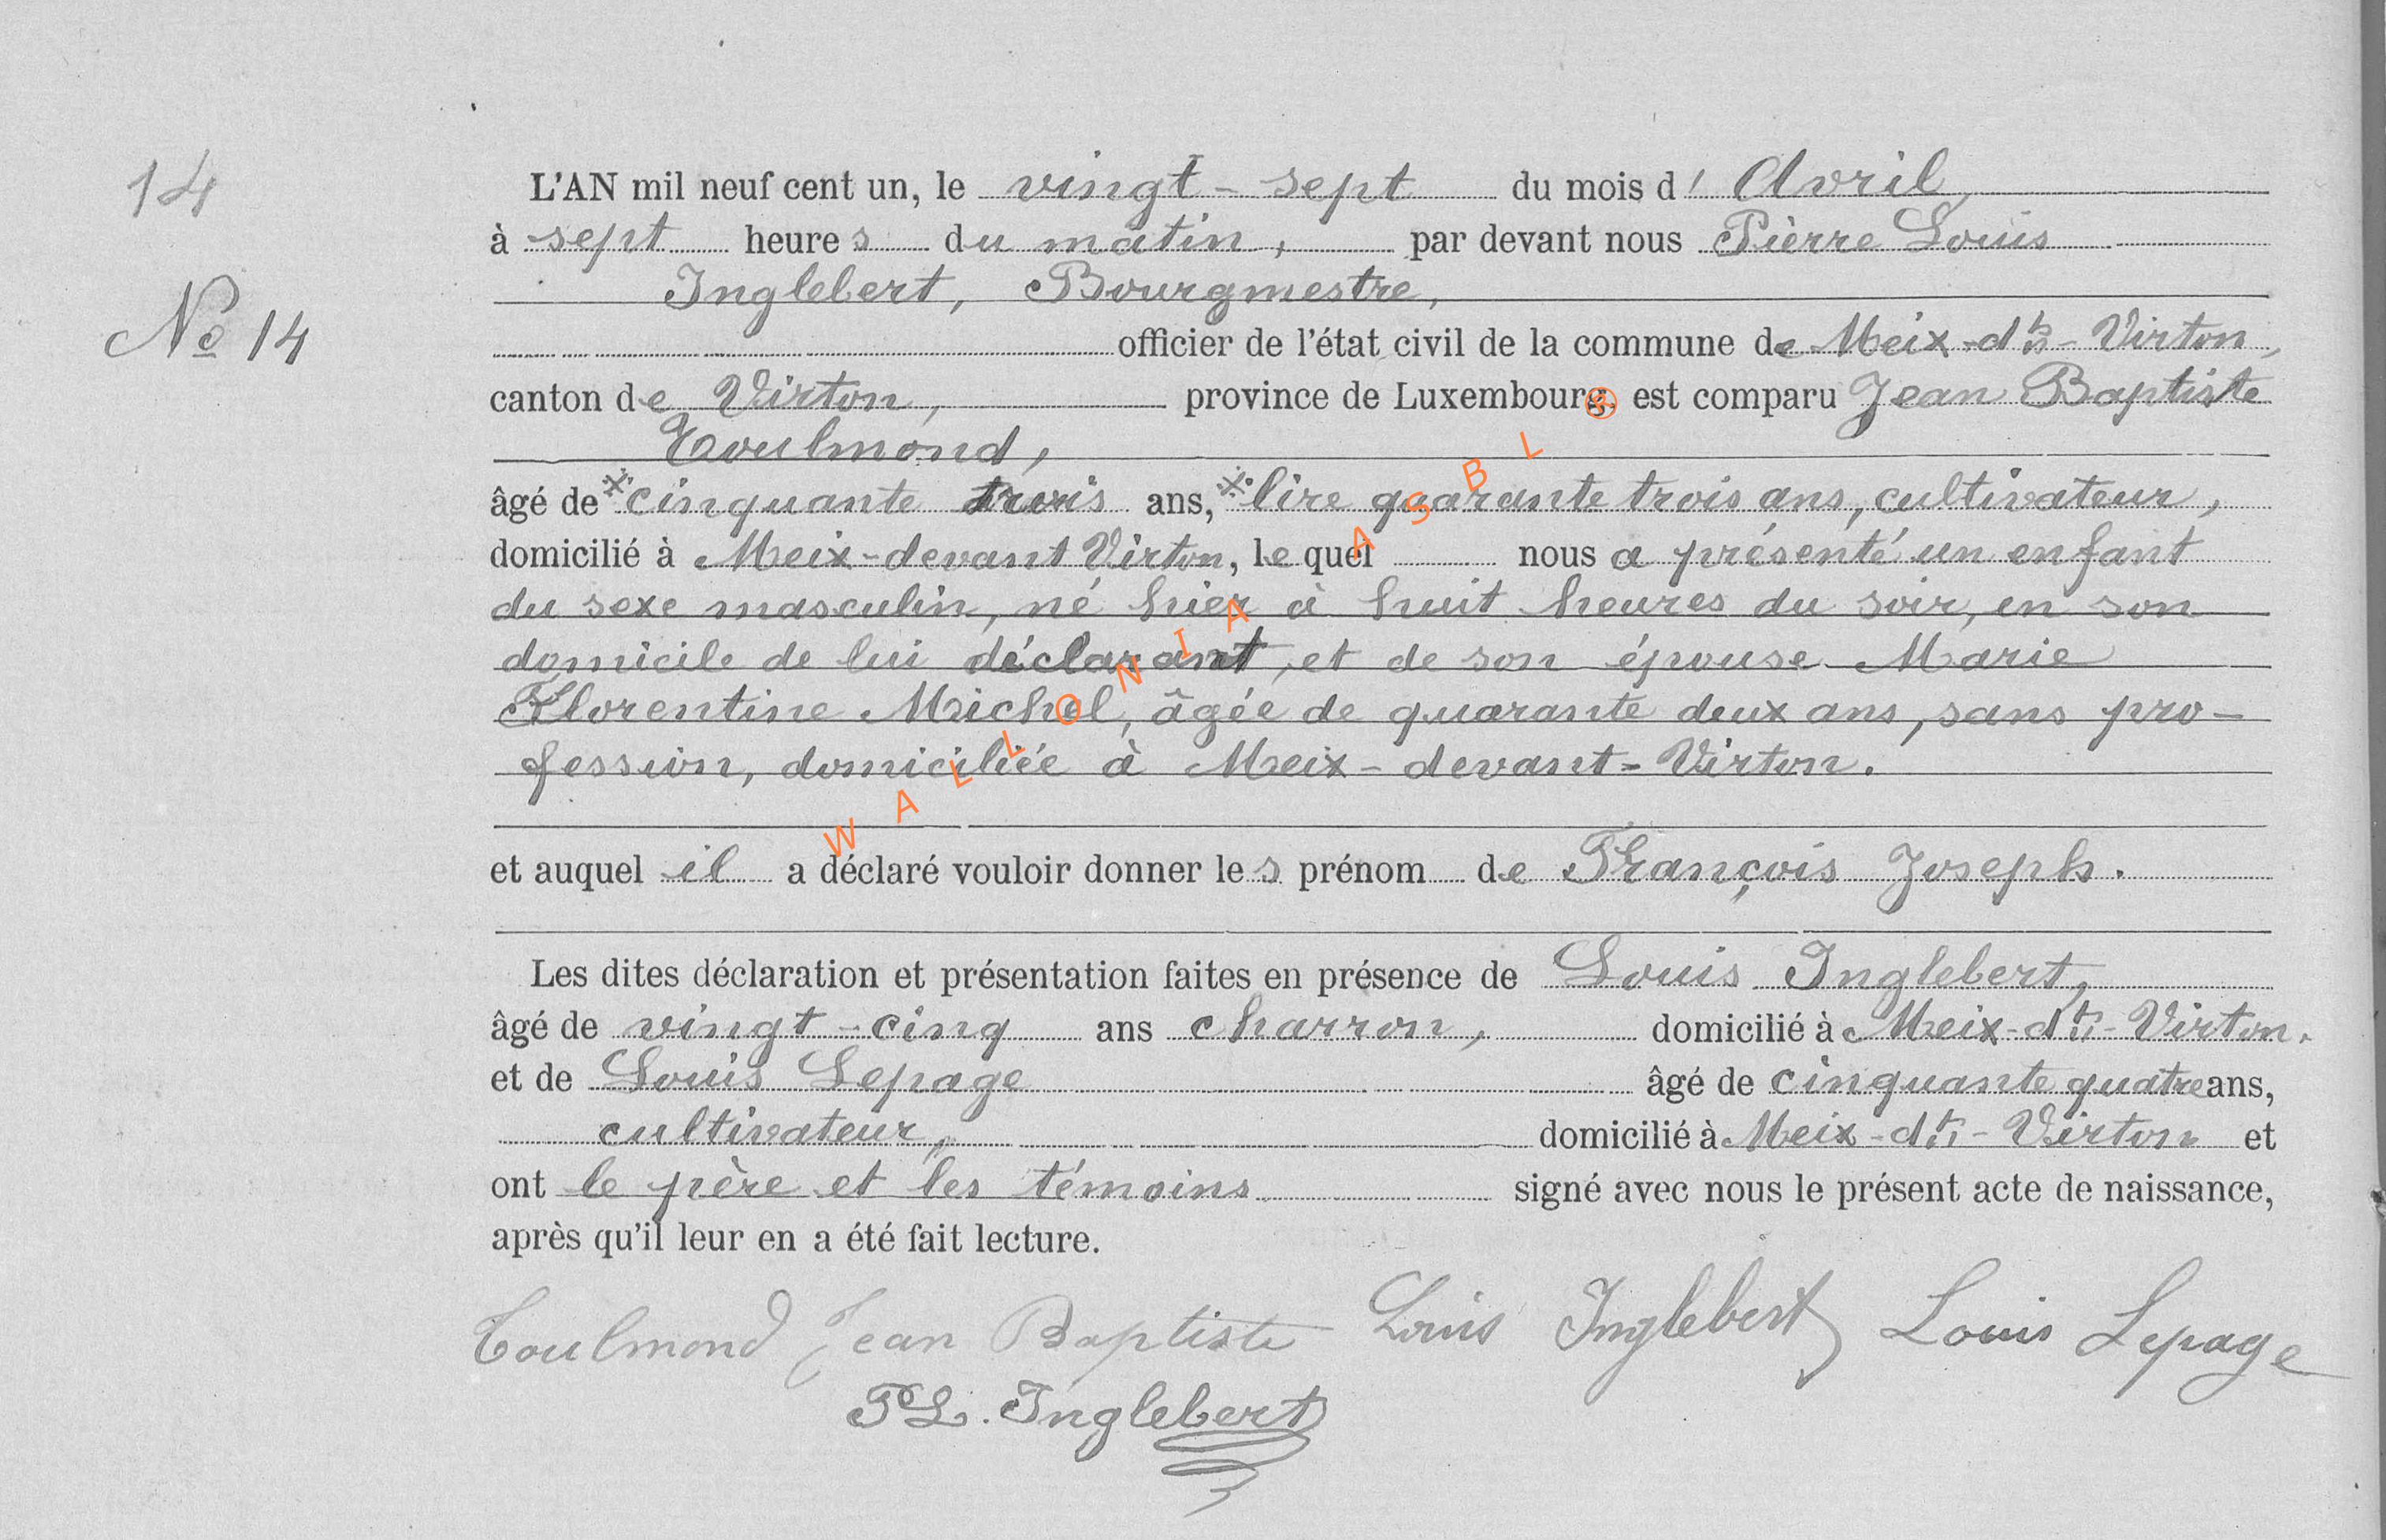 14
L'AN mil neuf cent un, le vingt-sept du mois d' Avril
à sept heures du matin, par devant nous Pièrre Louis
Inglebert, Bourgmestre,
No 14
officier de l'état civil de la commune de Meix-dt-Virton,
canton de Virton, province de Luxembourg, est comparu Jean Baptiste
Toulmond,
âgé de * cinquante trois ans, * lire quarante trois ans, cultivateur,
domicilié à Meix-devant Virton, lequel nous a présenté un enfant
du sexe masculin, né hier à huit heures du soir, en son
domicile de lui déclarant, et de son épouse Marie
Florentine Michel, âgée de quarante deux ans, sans pro-
fession, domiciliée à Meix-devant-Virton.
et auquel il a déclaré vouloir donner les prénom de François Joseph.
Les dites déclaration et présentation faites en présence de Louis Inglebert,
âgé de vingt-cinq ans charron, domicilié à Meix-dt-Virton.
et de Louis Lepage âgé de cinquante quatre ans,
cultivateur, domicilié à Meix-dt-Virton et
ont le père et les témoins signé avec nous le présent acte de naissance,
après qu'il leur en a été fait lecture.
Toulmond Jean Baptiste Louis Inglebert Louis Lepage
PL. Inglebert
WALLONIA ASBL ®